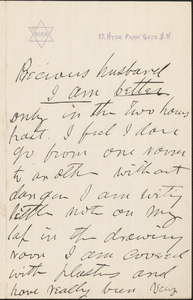 17, HYDE PARK GATE S.W.
Precious husband
I am better
only in the two hours
past. I feel I dare
go from one room
to another without
danger I am writing
this note on my
lap in the drawing
room I am covered
with plasters and
have really been very